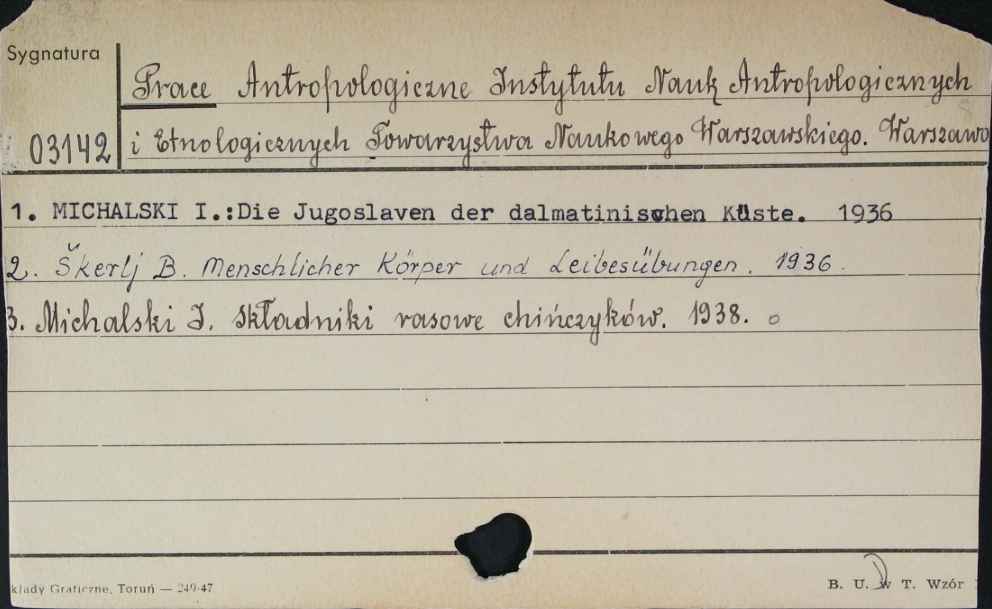 Sygnatura
Prace Antropologiczne Instytutu Nauk Antropologicznych
03142 i Etnologicznych Towarzystwa Naukowego Warszawskiego. Warszawa
1. MICHALSKI I.:Die Jugoslaven der dalmatinischen Küste. 1936
2. Škerlj B. Menschlicher Körper und Leibesübungen. 1936.
3. Michalski I. Składniki rasowe chińczyków. 1938.
kłady Graficzne, Toruń — 249-47
B. U. w T. Wzór